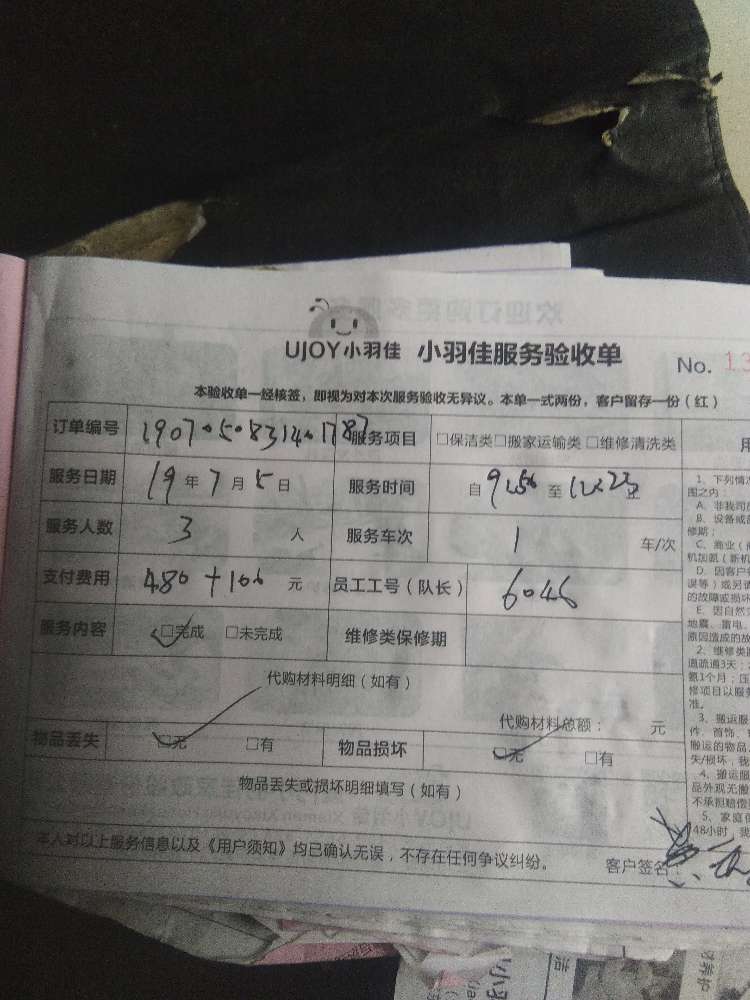 UJOY小羽佳 小羽佳服务验收单 No. 13
本验收单一经核签，即视为对本次服务验收无异议。本单一式两份，客户留存一份（红）
订单编号 1907·5·8314·1787 服务项目 □保洁类□搬家运输类□维修清洗类
服务日期 19年7月5日 服务时间 自9:56至12:22
服务人数 3人 服务车次 1 车/次
支付费用 480+100元 员工工号（队长） 6046
服务内容 □完成 □未完成 维修类保修期
代购材料明细（如有）
代购材料总额： 元
物品丢失 □无 □有 物品损坏 □无 □有
物品丢失或损坏明细填写（如有）
本人对以上服务信息以及《用户须知》均已确认无误，不存在任何争议纠纷。 客户签名：
用
1、下列情
围之内：
A、非我司
B、设备或
修期；
C、商业（
机加氨（新机
D、因客户
误等）或另
的故障或损坏
E、因自然
地震、雷电、
原因造成的故
2、维修类
道疏通3天；
氨1个月；压
修项目以服务
准。
3、搬运服
件、首饰、
搬运的物品
失/损坏，我
4、搬运
品外观无搬
不承担赔偿
5、家庭
48小时，我